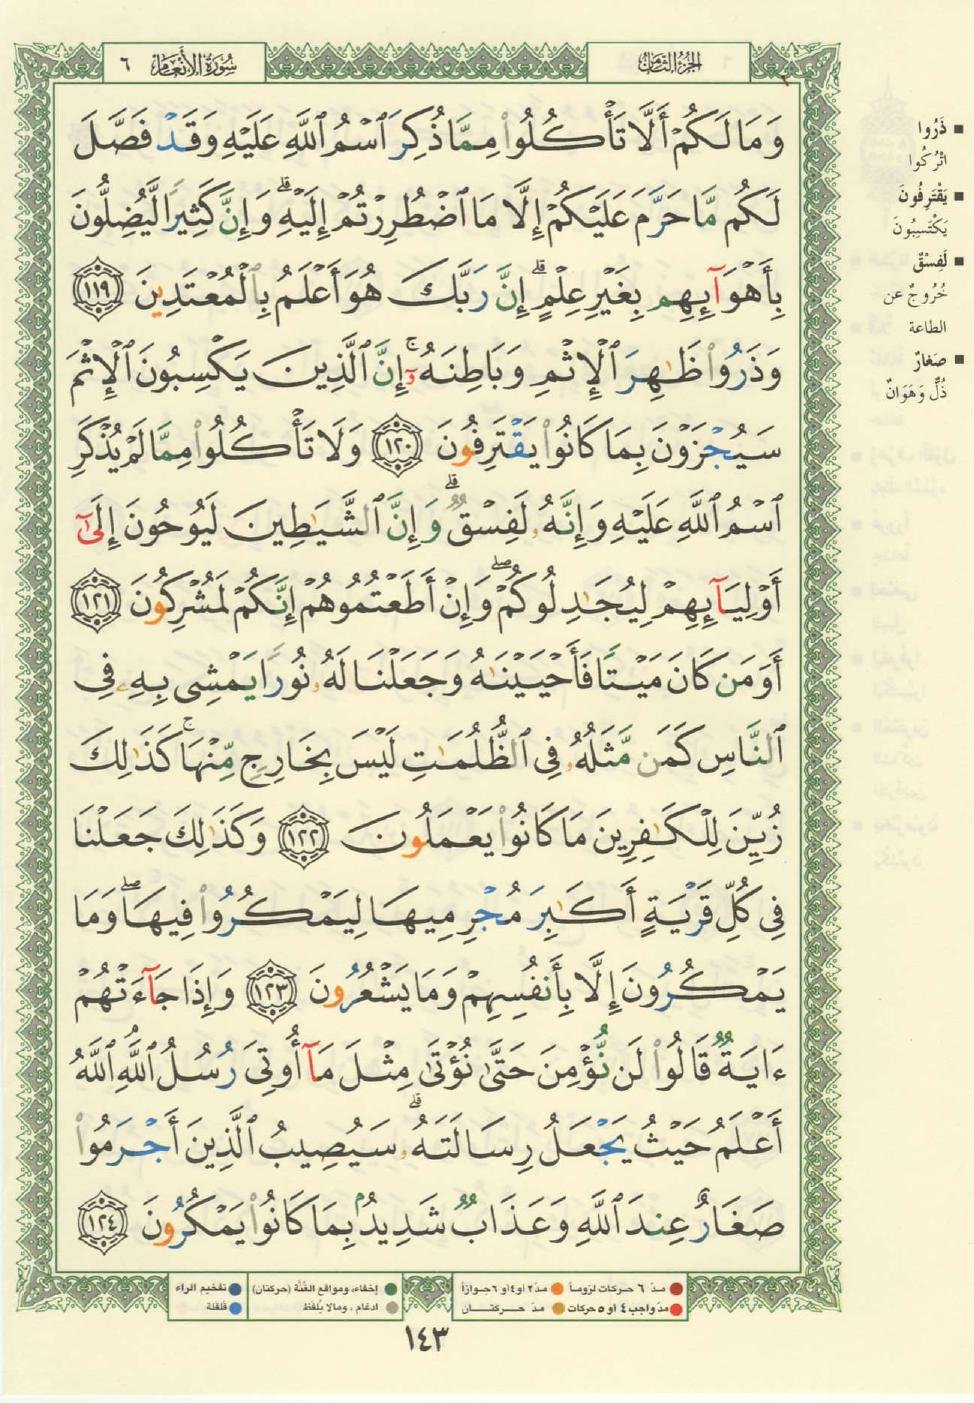 سُورَةُ الأَنْعَام ٦
الجُزْءُ الثَّامِن
وَمَا لَكُمْ أَلَّا تَأْكُلُوا۟ مِمَّا ذُكِرَ ٱسْمُ ٱللَّهِ عَلَيْهِ وَقَدْ فَصَّلَ
لَكُم مَّا حَرَّمَ عَلَيْكُمْ إِلَّا مَا ٱضْطُرِرْتُمْ إِلَيْهِ ۗ وَإِنَّ كَثِيرًا لَّيُضِلُّونَ
بِأَهْوَآئِهِم بِغَيْرِ عِلْمٍ ۗ إِنَّ رَبَّكَ هُوَ أَعْلَمُ بِٱلْمُعْتَدِينَ ١١٩
وَذَرُوا۟ ظَـٰهِرَ ٱلْإِثْمِ وَبَاطِنَهُۥٓ ۚ إِنَّ ٱلَّذِينَ يَكْسِبُونَ ٱلْإِثْمَ
سَيُجْزَوْنَ بِمَا كَانُوا۟ يَقْتَرِفُونَ ١٢٠ وَلَا تَأْكُلُوا۟ مِمَّا لَمْ يُذْكَرِ
ٱسْمُ ٱللَّهِ عَلَيْهِ وَإِنَّهُۥ لَفِسْقٌ ۗ وَإِنَّ ٱلشَّيَـٰطِينَ لَيُوحُونَ إِلَىٰٓ
أَوْلِيَآئِهِمْ لِيُجَـٰدِلُوكُمْ ۖ وَإِنْ أَطَعْتُمُوهُمْ إِنَّكُمْ لَمُشْرِكُونَ ١٢١
أَوَمَن كَانَ مَيْتًا فَأَحْيَيْنَـٰهُ وَجَعَلْنَا لَهُۥ نُورًا يَمْشِى بِهِۦ فِى
ٱلنَّاسِ كَمَن مَّثَلُهُۥ فِى ٱلظُّلُمَـٰتِ لَيْسَ بِخَارِجٍ مِّنْهَا ۚ كَذَٰلِكَ
زُيِّنَ لِلْكَـٰفِرِينَ مَا كَانُوا۟ يَعْمَلُونَ ١٢٢ وَكَذَٰلِكَ جَعَلْنَا
فِى كُلِّ قَرْيَةٍ أَكَـٰبِرَ مُجْرِمِيهَا لِيَمْكُرُوا۟ فِيهَا ۖ وَمَا
يَمْكُرُونَ إِلَّا بِأَنفُسِهِمْ وَمَا يَشْعُرُونَ ١٢٣ وَإِذَا جَآءَتْهُمْ
ءَايَةٌ قَالُوا۟ لَن نُّؤْمِنَ حَتَّىٰ نُؤْتَىٰ مِثْلَ مَآ أُوتِىَ رُسُلُ ٱللَّهِ ۘ ٱللَّهُ
أَعْلَمُ حَيْثُ يَجْعَلُ رِسَالَتَهُۥ ۗ سَيُصِيبُ ٱلَّذِينَ أَجْرَمُوا۟
صَغَارٌ عِندَ ٱللَّهِ وَعَذَابٌ شَدِيدٌۢ بِمَا كَانُوا۟ يَمْكُرُونَ ١٢٤
ذَرُوا
اتْرُكُوا
يَقْتَرِفُونَ
يَكْتَسِبُونَ
لَفِسْقٌ
خُرُوجٌ عن
الطاعة
صَغارٌ
ذُلٌّ وَهَوَانٌ
مدّ ٦ حركات لزوماً مدّ ٢ او ٤ او ٦ جوازاً
مدّ واجب ٤ أو ٥ حركات مدّ حركتان
إخفاء، ومواقع الغُنَّة (حركتان) تفخيم الراء
ادغام، ومالا يُلفَظ قلقلة
١٤٣